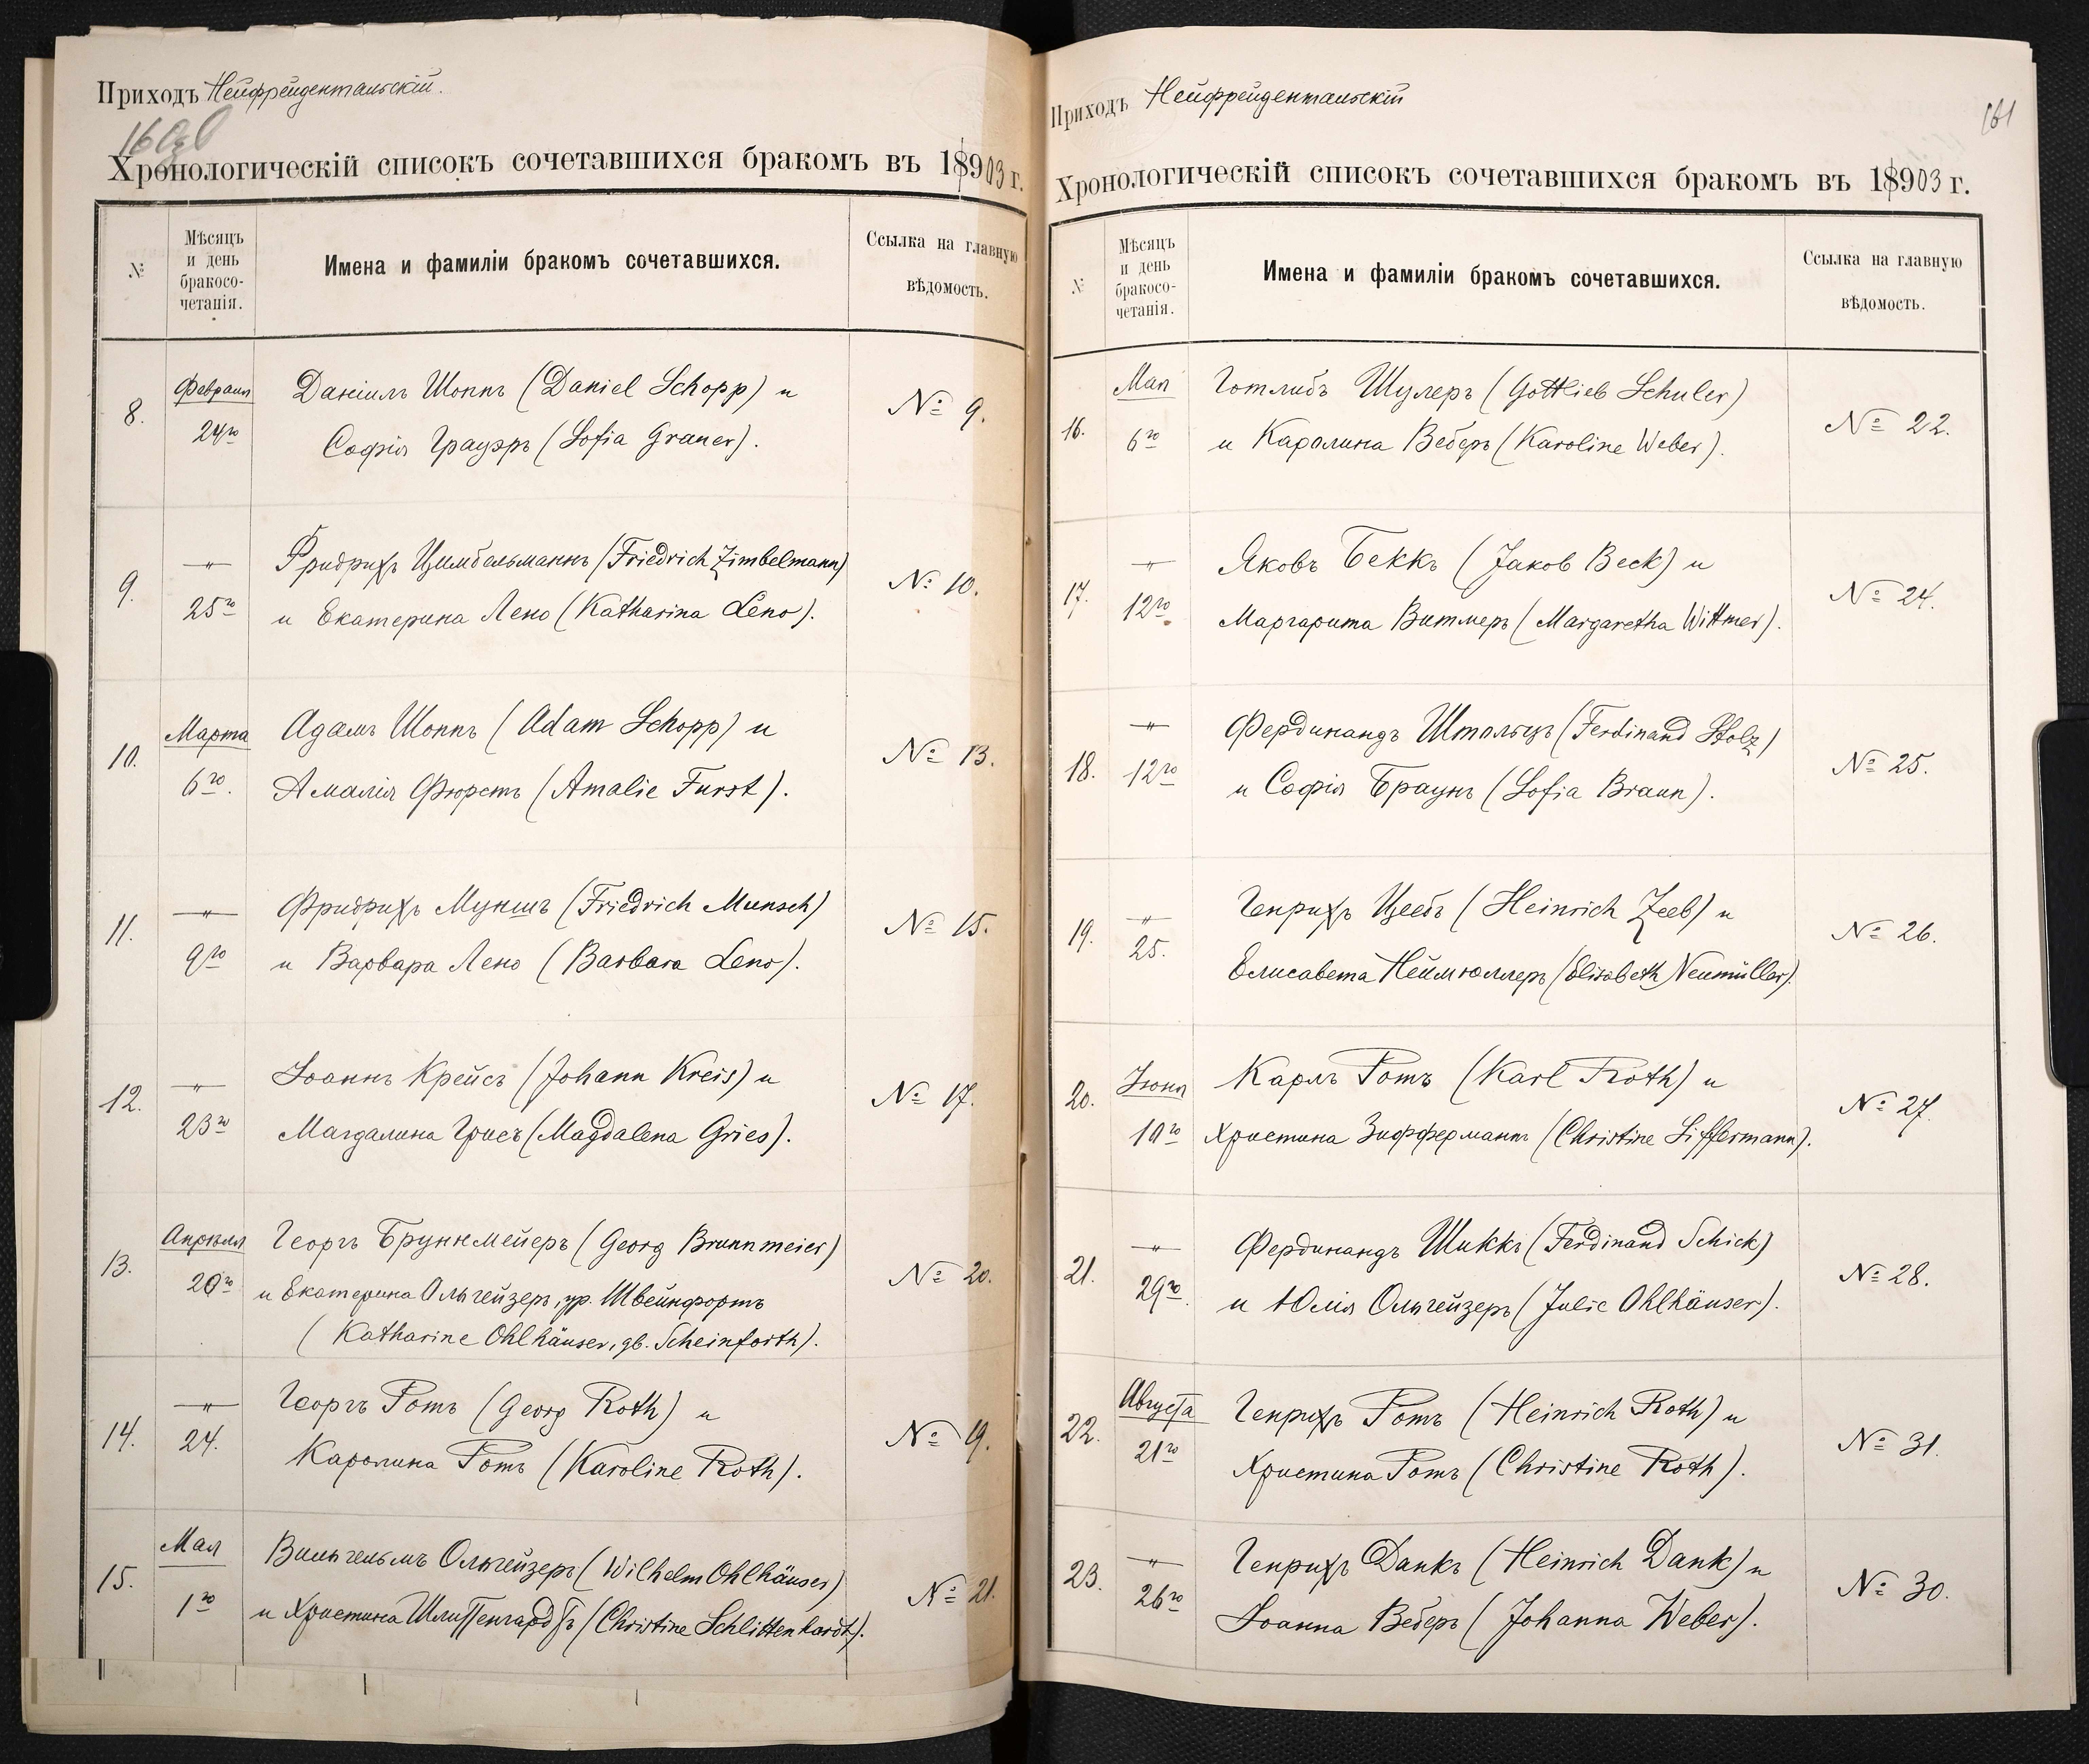 Приходъ Нейфрейдентальскій.
Хронологическій списокъ сочетавшихся бракомъ въ 18903 г.
№
Мѣсяцъ
и день
бракосо-
четанія.
Имена и фамиліи бракомъ сочетавшихся.
Ссылка на главную
вѣдомость.
8.
Февраля
24го
Даніилъ Шоппъ (Daniel Schopp) и
Софія Грауэръ (Sofia Grauer).
№ 9.
9.
—〃—
25го
Фридрихъ Цимбельманнъ (Friedrich Zimbelmann)
и Екатерина Лено (Katharina Leno).
№ 10.
10.
Марта
6го.
Адамъ Шоппъ (Adam Schopp) и
Амалія Фюрстъ (Amalie Furst).
№ 13.
11.
—〃—
9го
Фридрихъ Муншъ (Friedrich Munsch)
и Варвара Лено (Barbara Leno).
№ 15.
12.
—〃—
23го
Іоаннъ Крейсъ (Johann Kreis) и
Магдалина Грисъ (Magdalena Gries).
№ 17.
13.
Апрѣля
20го
Георгъ Бруннмейеръ (Georg Brunnmeier)
и Екатерина Ольгейзеръ, ур. Швейнфортъ
(Katharine Ohlhäuser, gb. Scheinforth).
№ 20.
14.
—〃—
24.
Георгъ Ротъ (Georg Roth) и
Каролина Ротъ (Karoline Roth).
№ 19.
15.
Мая
1го
Вильгельмъ Ольгейзеръ (Wilhelm Ohlhäuser)
и Христина Шлиттенгардтъ (Christine Schlittenhardt).
№ 21.
Приходъ Нейфрейдентальскій
161
Хронологическій списокъ сочетавшихся бракомъ въ 18903 г.
№
Мѣсяцъ
и день
бракосо-
четанія.
Имена и фамиліи бракомъ сочетавшихся.
Ссылка на главную
вѣдомость.
16.
Мая
6го
Готлибъ Шулеръ (Gottlieb Schuler)
и Каролина Веберъ (Karoline Weber).
№ 22.
17.
—〃—
12го
Яковъ Беккъ (Jakob Beck) и
Маргарита Витмеръ (Margaretha Wittmer).
№ 24.
18.
—〃—
12го
Фердинандъ Штольцъ (Ferdinand Stolz)
и Софія Браунъ (Sofia Braun).
№ 25.
19.
—〃—
25.
Генрихъ Цеебъ (Heinrich Zeeb) и
Елисавета Неймюллеръ (Elisabeth Neumüller).
№ 26.
20.
Іюня
10го
Карлъ Ротъ (Karl Roth) и
Христина Зифферманнъ (Christine Siffermann).
№ 27.
21.
—〃—
29го.
Фердинандъ Шиккъ (Ferdinand Schick)
и Юлія Ольгейзеръ (Julie Ohlhäuser).
№ 28.
22.
Августа
21го
Генрихъ Ротъ (Heinrich Roth) и
Христина Ротъ (Christine Roth).
№ 31.
23.
—〃—
26го
Генрихъ Данкъ (Heinrich Dank) и
Іоанна Веберъ (Johanna Weber).
№ 30.